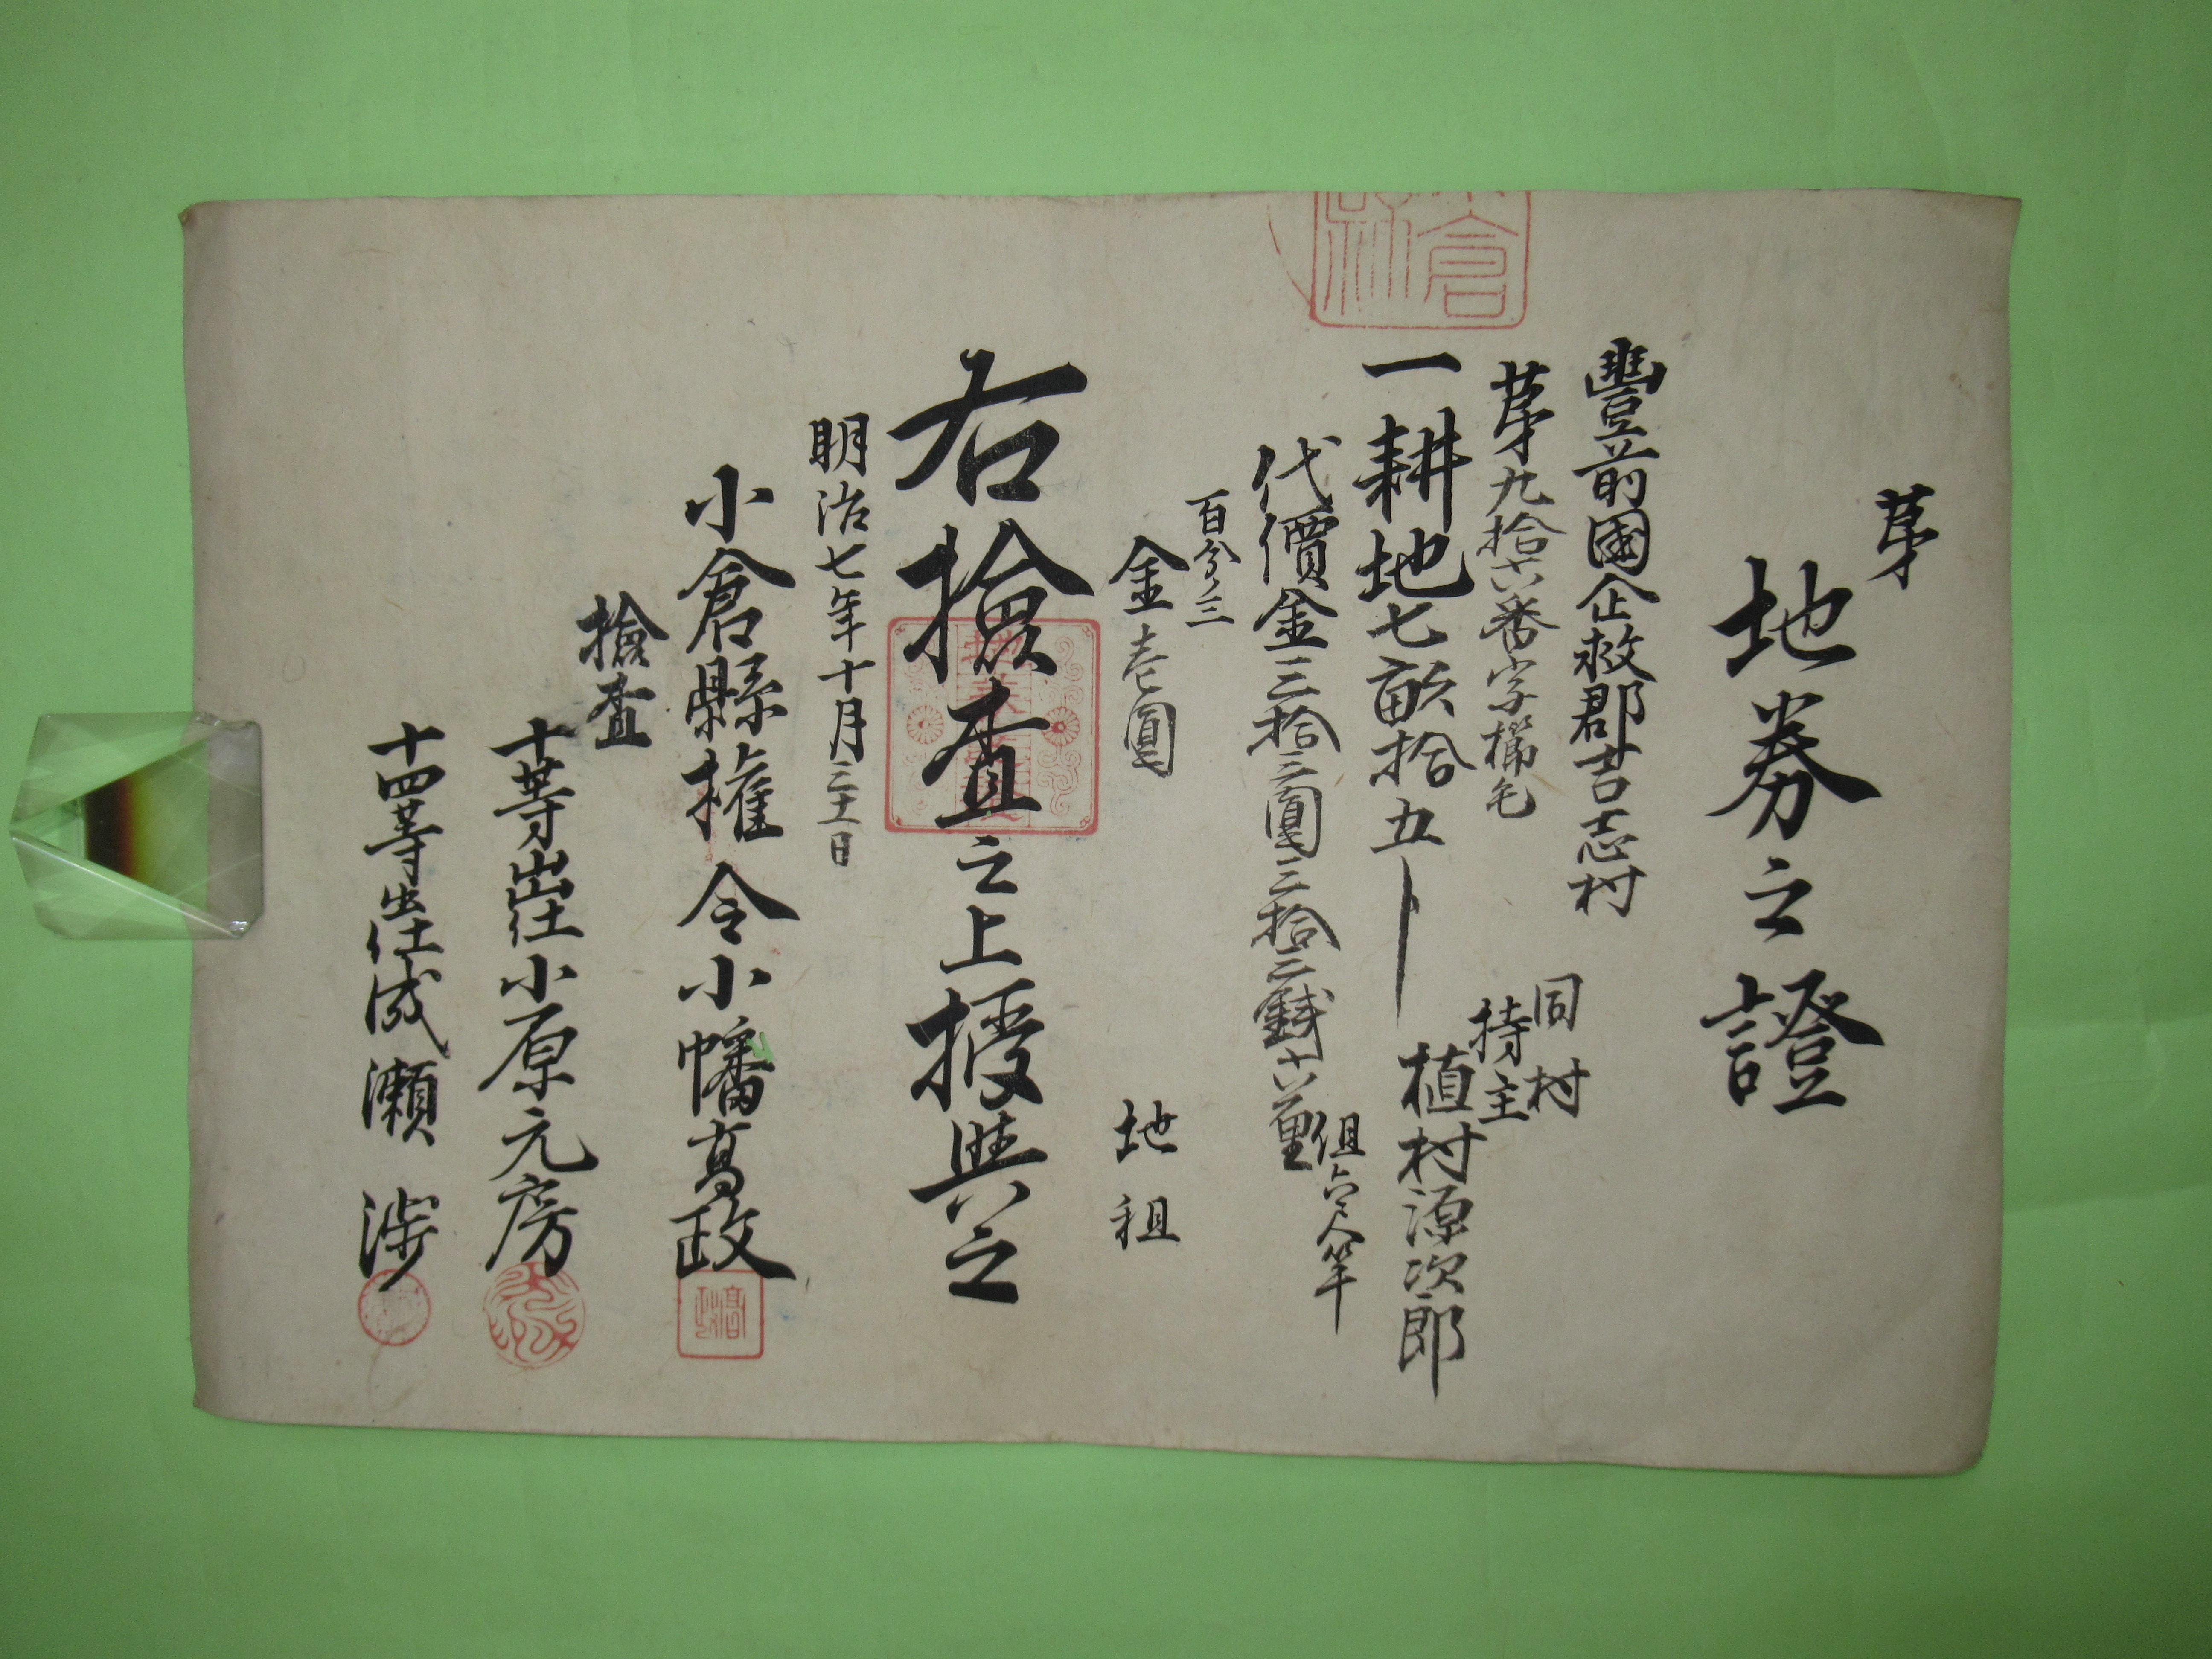 第
地券之證
豐前國企救郡吉志村
第九拾六番字櫛毛
同村
持主
植村源次郎
一耕地七畝拾五卜
代價金三拾三圓三拾三銭六厘
百分ノ三
金壱圓
地租
右撿査之上授與之
明治七年十月三十一日
小倉縣權令小幡高政
撿査
十等出仕小原元房
十四等出仕成瀬渉